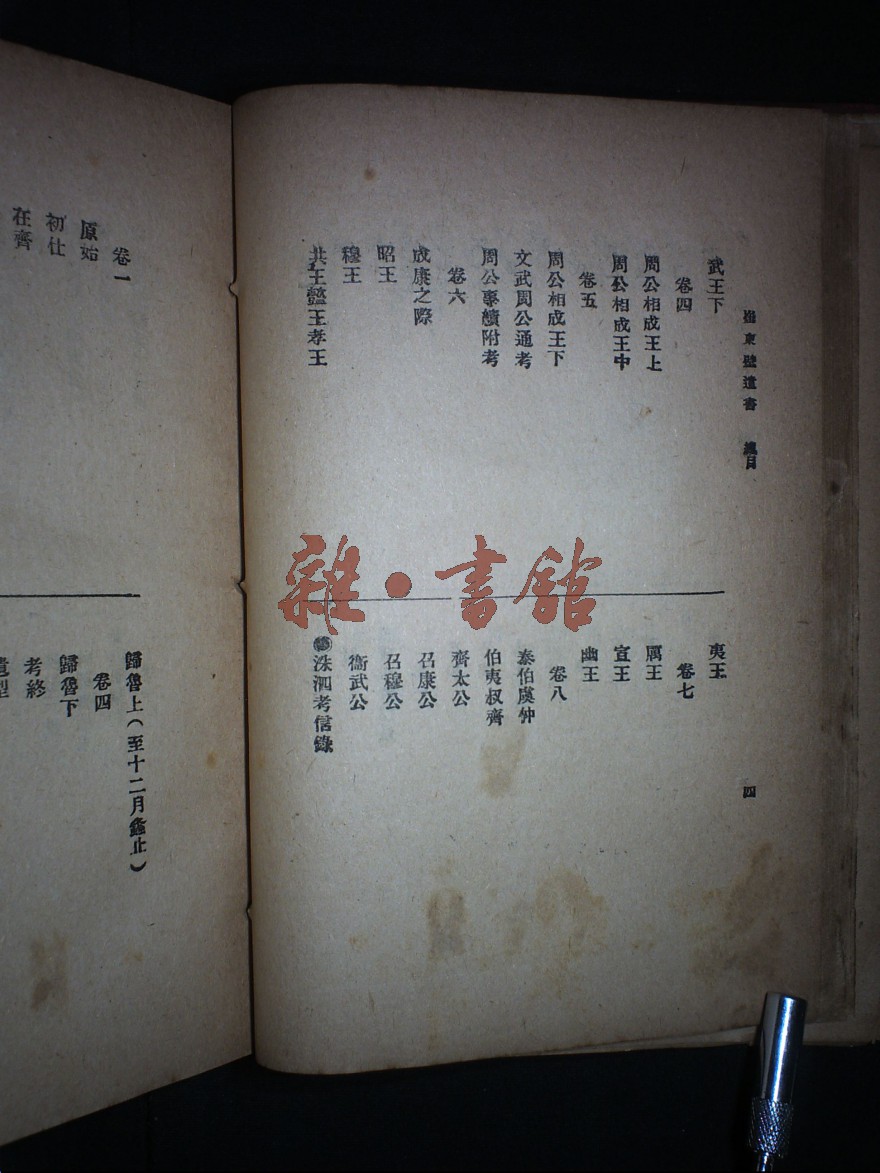 崔東壁遺書 總目
四
武王下
卷四
周公相成王上
周公相成王中
卷五
周公相成王下
文武周公通考
周公事績附考
卷六
成康之際
昭王
穆王
共王懿王孝王
夷王
卷七
厲王
宣王
幽王
卷八
泰伯虞仲
伯夷叔齊
齊太公
召康公
召穆公
衞武公
洙泗考信錄
卷一
原始
初仕
在齊
歸魯上(至十二月螽止)
卷四
歸魯下
考終
遺型
雜·書館